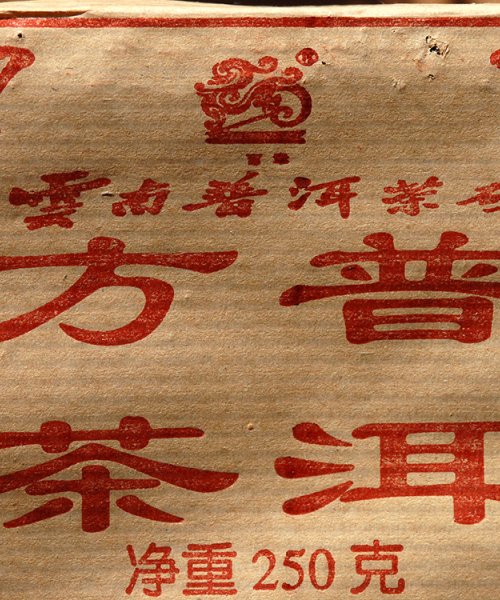 雲南普洱茶
方 普
茶 洱
净重 250 克